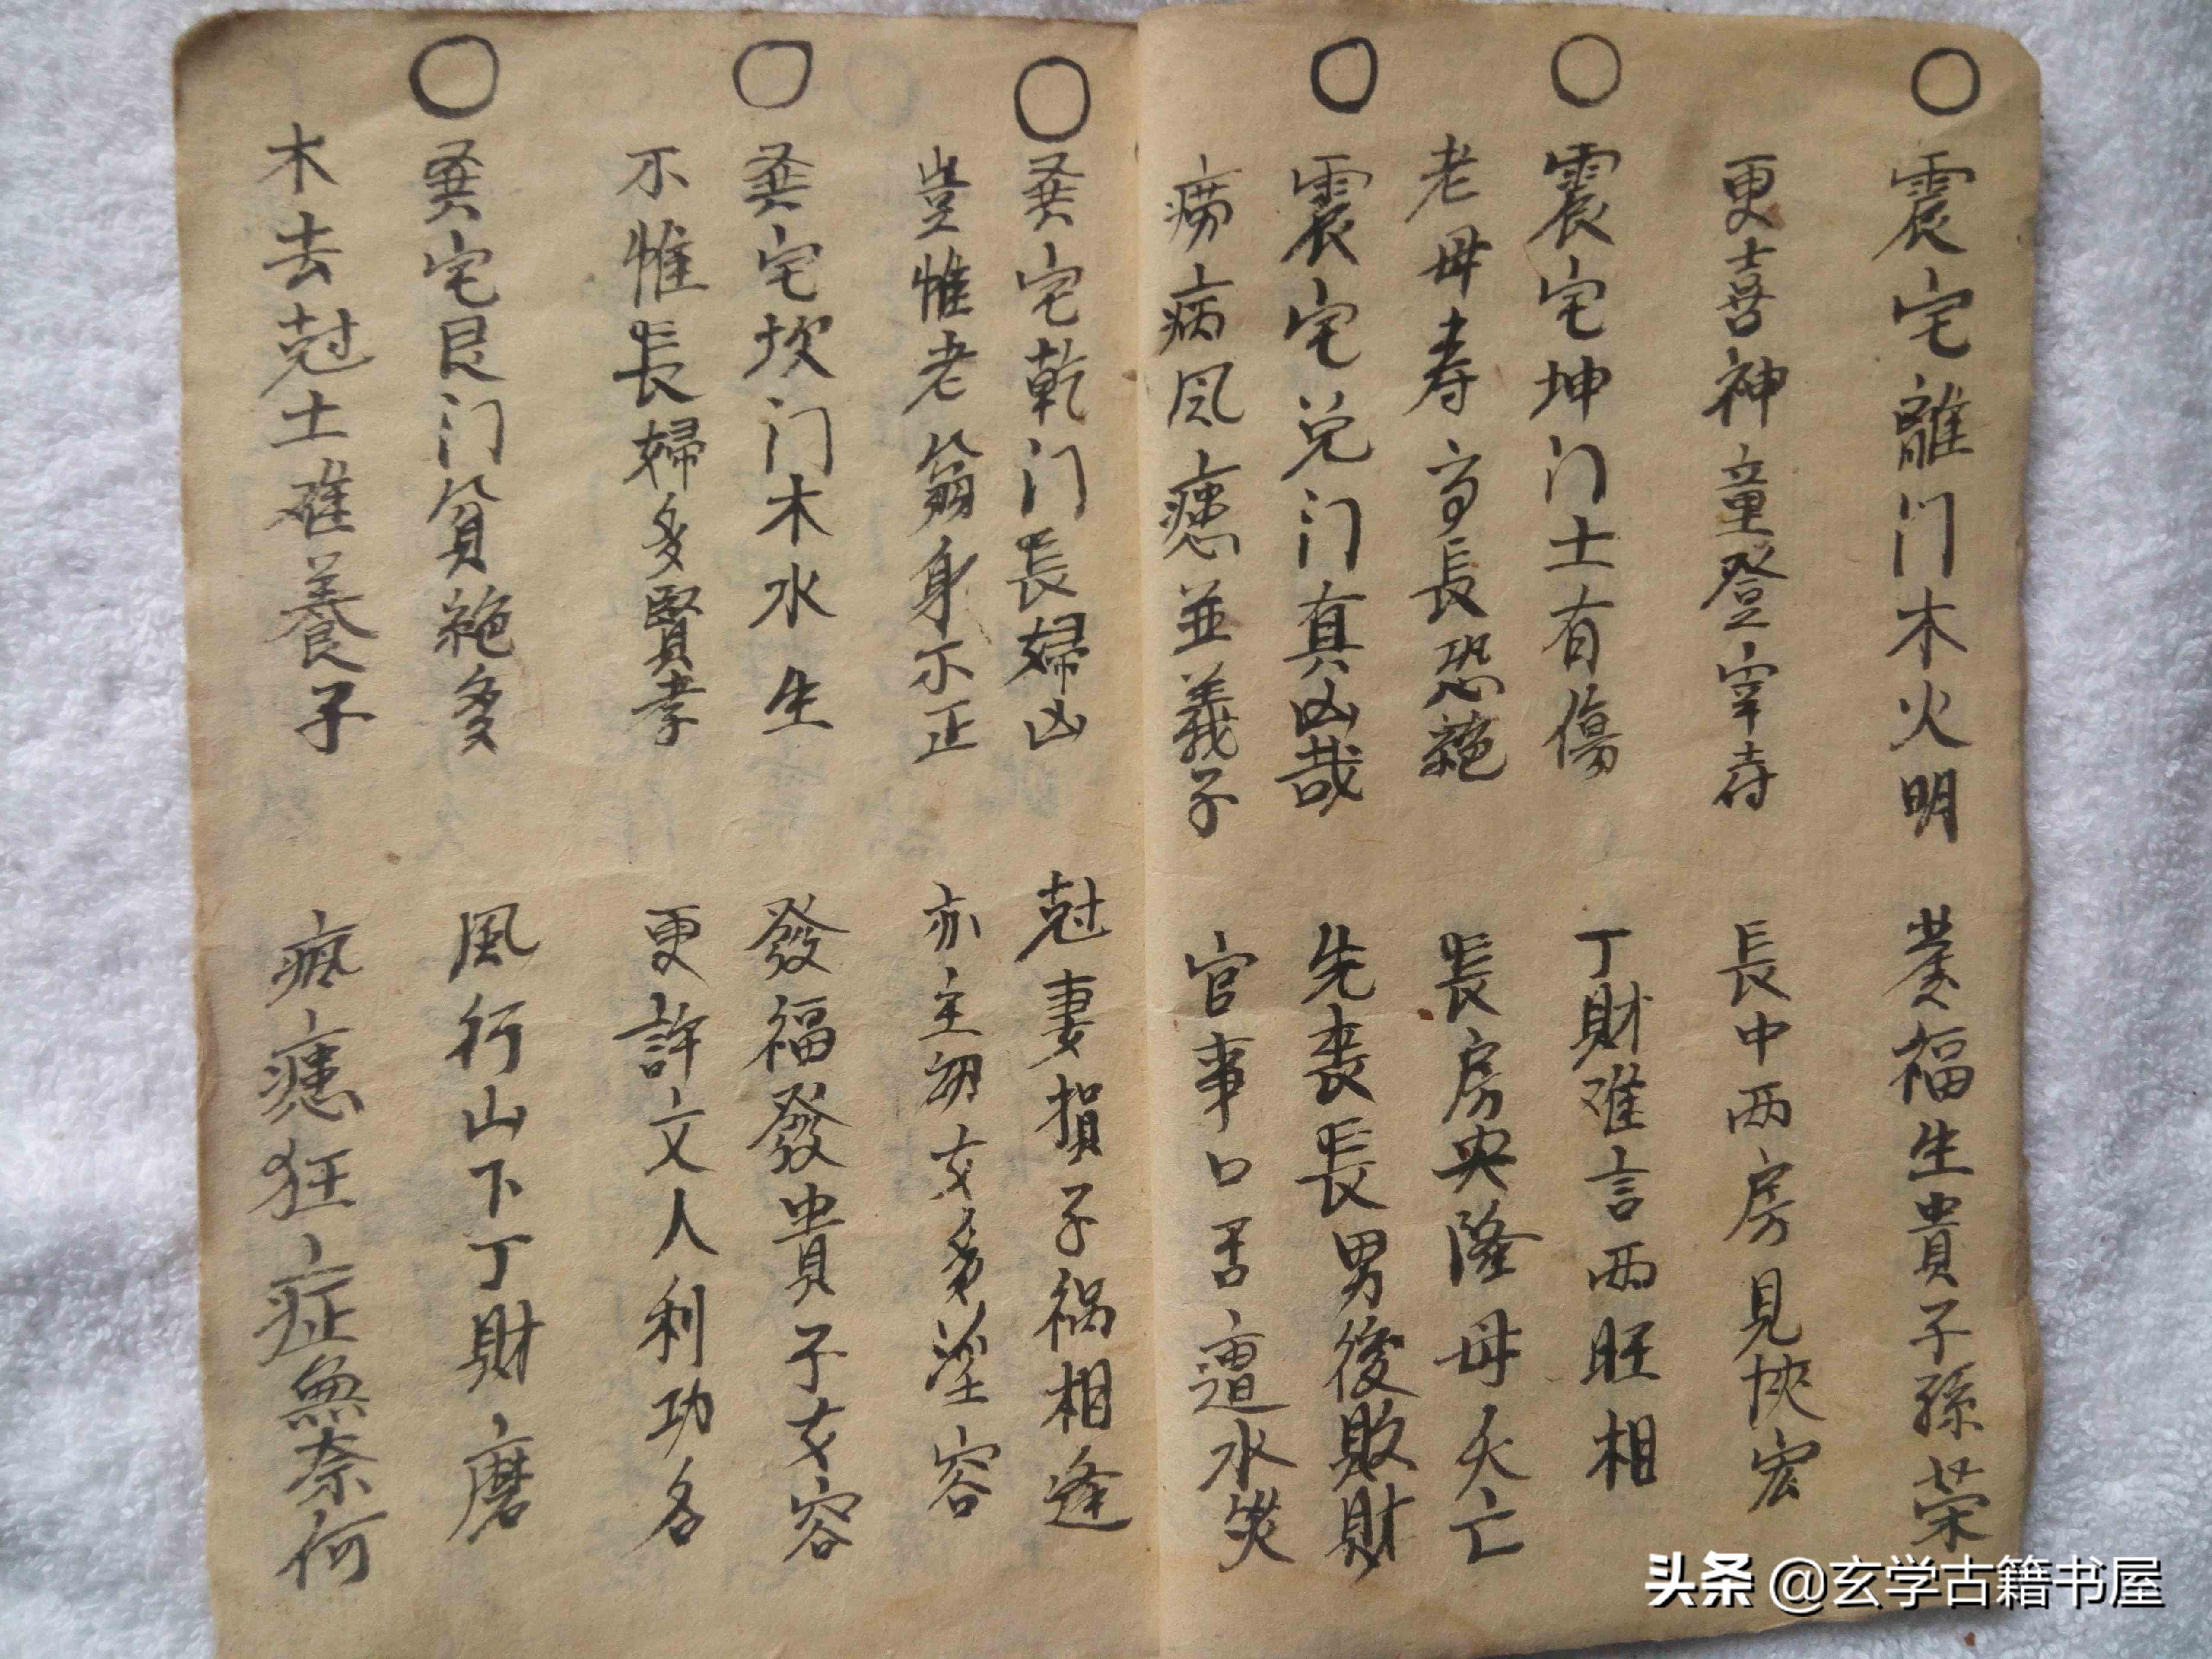 ○震宅離门木火明 發福生貴子孫荣
更喜神童登宰府 長中两房見恢宏
○震宅坤门土有傷 丁財难言两旺相
老母寿高長恐絕 長房興隆母夭亡
○震宅兑门真凶哉 先喪長男後敗財
痨病风癔並義子 官事口舌遭水災
○巽宅乾门長婦凶 尅妻損子祸相逢
豈惟老翁身不正 亦主幼女多淫容
○巽宅坎门木水生 發福發貴子女容
不惟長婦多賢孝 更許文人利功名
○巽宅艮门貧絕多 風行山下丁財磨
木去尅土难養子 疯癔狂症無奈何
头条 @玄学古籍书屋